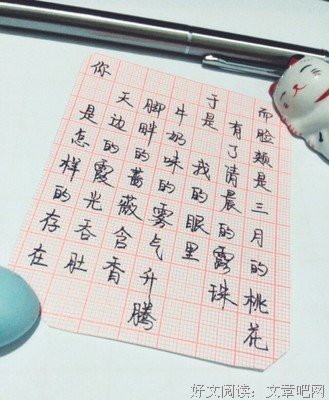 你
是怎样的存在
天边的霞光吞肚
脚胖的蔷薇含香
牛奶味的雾气升腾
于是 我的眼里
有了清晨的露珠
而脸颊是三月的桃花
好文阅读:文章吧网